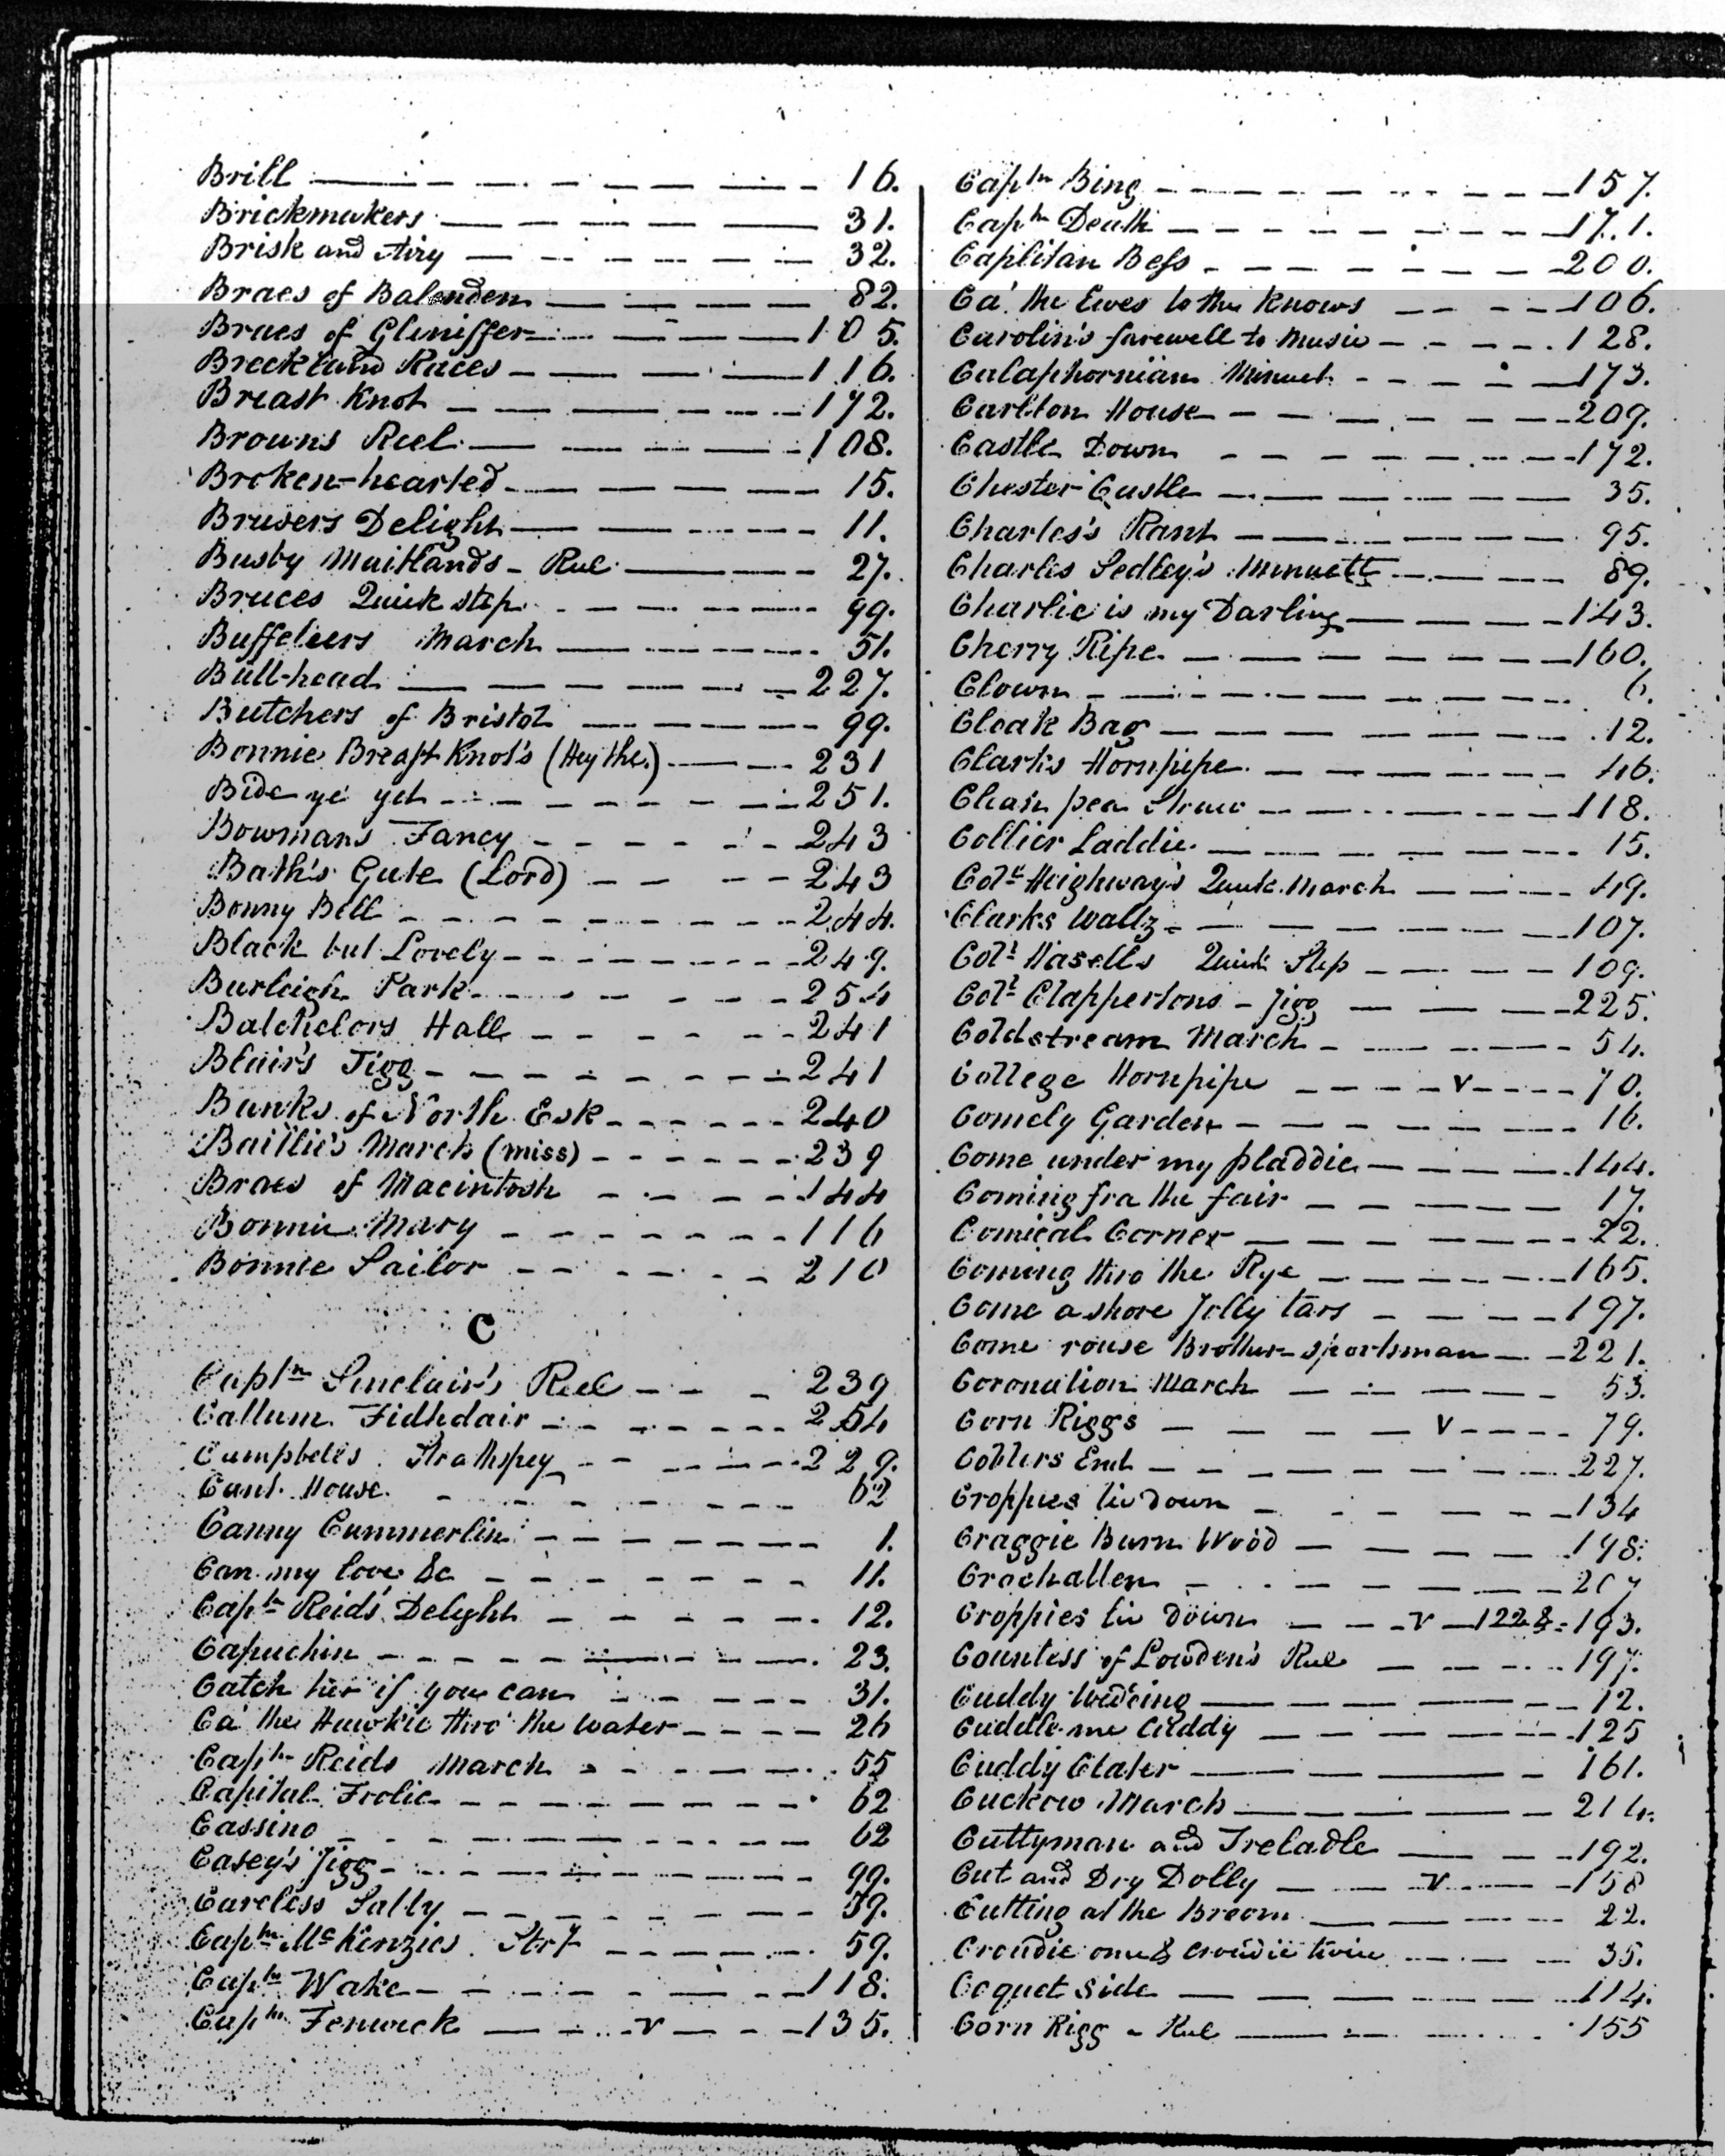 Brill 16.
Brickmakers 31.
Brisk and Airy 32.
Braes of Balenden 82.
Braes of Gleniffer 105.
Breckland Races 116.
Breast Knot 172.
Browns Reel 108.
Broken-hearted 15.
Bruwers Delight 11.
Busby Maitlands - Reel 27.
Bruces Quick step 99.
Buffeleers March 51.
Bull-head 227.
Butchers of Bristol 99.
Bonnie Breast Knot's (Hey the) 231
Bide ye yet 251.
Bowmans Fancy 243
Bath's Gute (Lord) 243
Bonny Bell 244.
Black but Lovely 249.
Burleigh Park 254
Batchelors Hall 241
Blair's Jigg 241
Banks of North Esk 240
Baillie's March (miss) 239
Braes of Macintosh 144
Bonnie Mary 116
Bonnie Sailor 210
C
Captn Sinclair's Reel 239
Callum Fidhdair 254
Campbells Strathspey 229.
Cant House 62
Canny Cummerlin 1.
Can my love &c 11.
Captn Reids Delight 12.
Capuchin 23.
Catch her if you can 31.
Ca' the Hawkie thro' the water 26
Captn Reids March 55
Capital Frolic 62
Cassino 62
Casey's Jigg 99.
Careless Sally 59.
Captn McKenzies Str 59.
Captn Wake 118.
Captn Fenwick v 135.
Captn Bing 157.
Captn Death 171.
Caplitan Bess 200.
Ca' the Ewes to the Knows 106.
Carolin's farewell to Music 128.
Calaphornian Minuet 173.
Carlton House 209.
Castle Down 172.
Chester Castle 35.
Charles's Rant 95.
Charles Sedley's Minuett 89.
Charlie is my Darling 143.
Cherry Ripe 160.
Clown 6.
Cloak Bag 12.
Clarks Hornpipe 46.
Clean pea Straw 118.
Collier Laddie 15.
Coll Heighway's Quick March 49.
Clarks Waltz 107.
Coll Hasells Quick Step 109.
Coll Clappertons - Jigg 225.
Coldstream March 54.
College Hornpipe v 70.
Comely Garden 16.
Come under my pladdie 144.
Coming fra the fair 17.
Comical Corner 22.
Coming thro the Rye 165.
Come a shore Jolly tars 197.
Come rouse Brother sportsman 221.
Coronation March 53.
Corn Riggs v 79.
Coblers End 227.
Croppies lie down 134
Craggie Burn Wood 198.
Crochallen 207
Croppies lie down v 122 & 193.
Countess of Lowden's Reel 197.
Cuddy Wedding 12.
Cuddle me Cuddy 125
Cuddy Clater 161.
Cuckow March 214.
Cuttyman and Treladle 192.
Cut and Dry Dolly v 158
Cutting at the Broom 22.
Croudie one & croudie twice 35.
Coquet side 114.
Corn Rigg - Reel 155